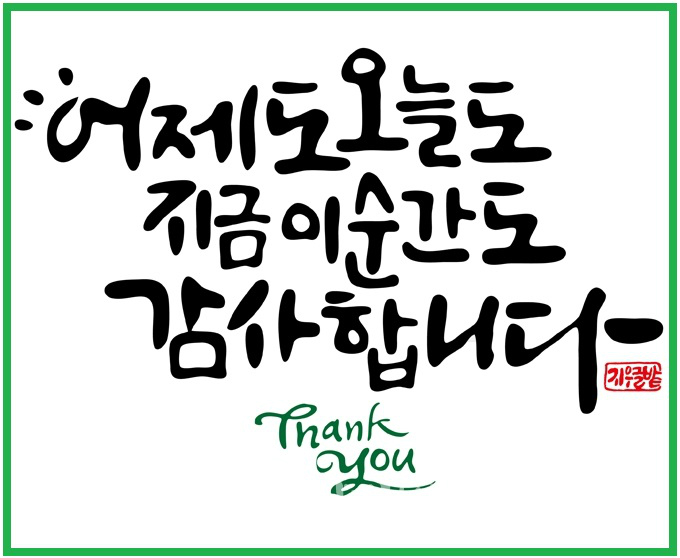 어제도 오늘도
지금 이순간도
감사합니다
지우글밭
Thank
you